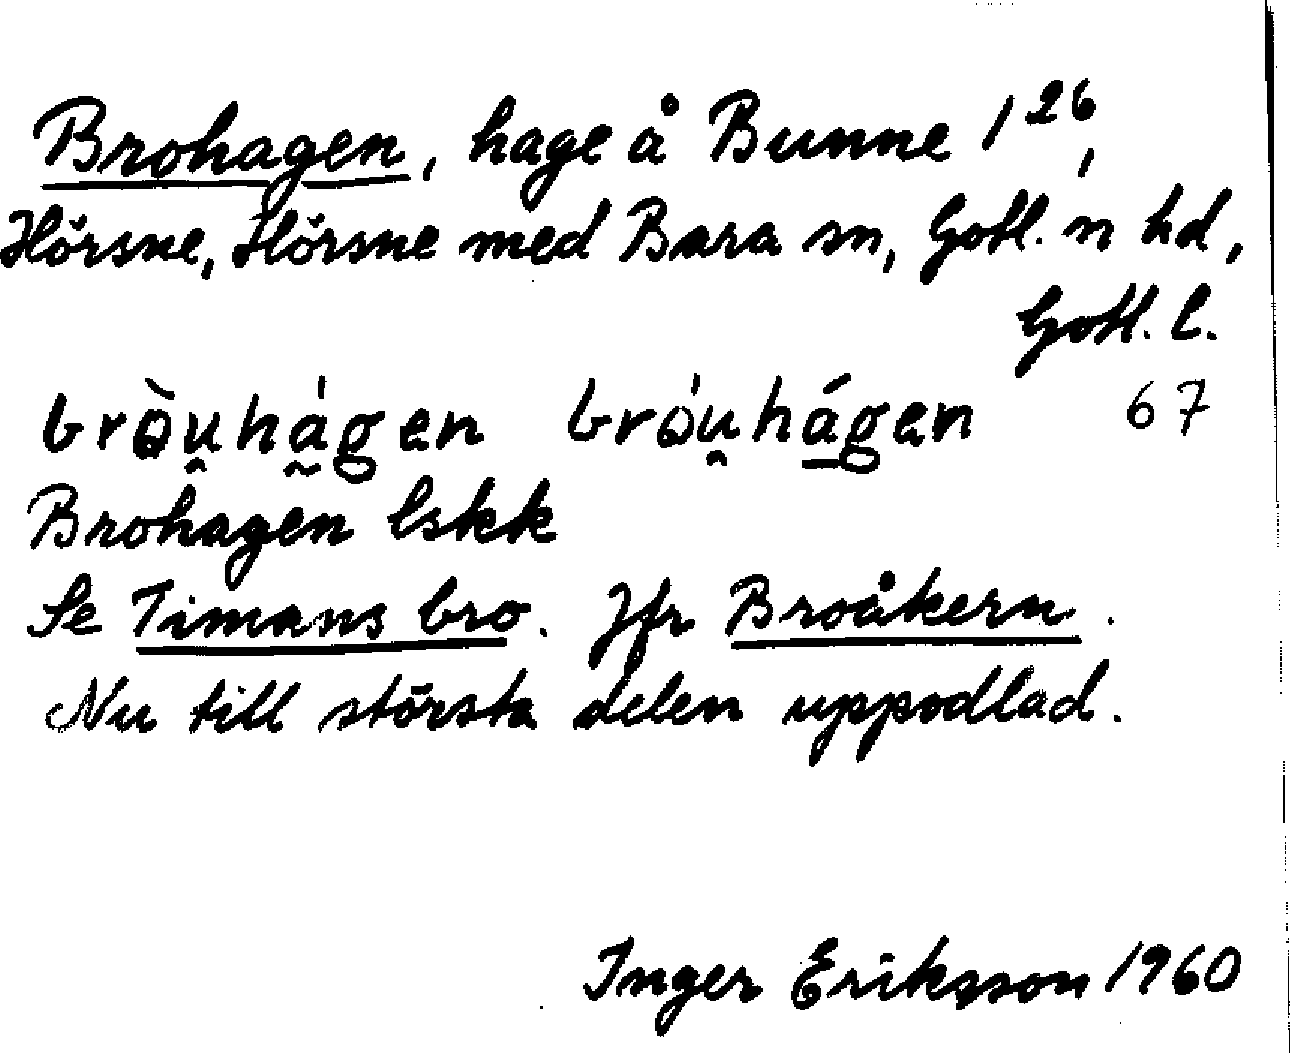 Brohagen, hage å Bunne 1²⁶,
Hörsne, Hörsne med Bara sn, Gotl. n hd,
Gotl. l.
bròu̯há̰gen bróu̯hágen 67
Brohagen lskk
Se Timans bro. Jfr Broåkern.
Nu till största delen uppodlad.
Inger Eriksson 1960